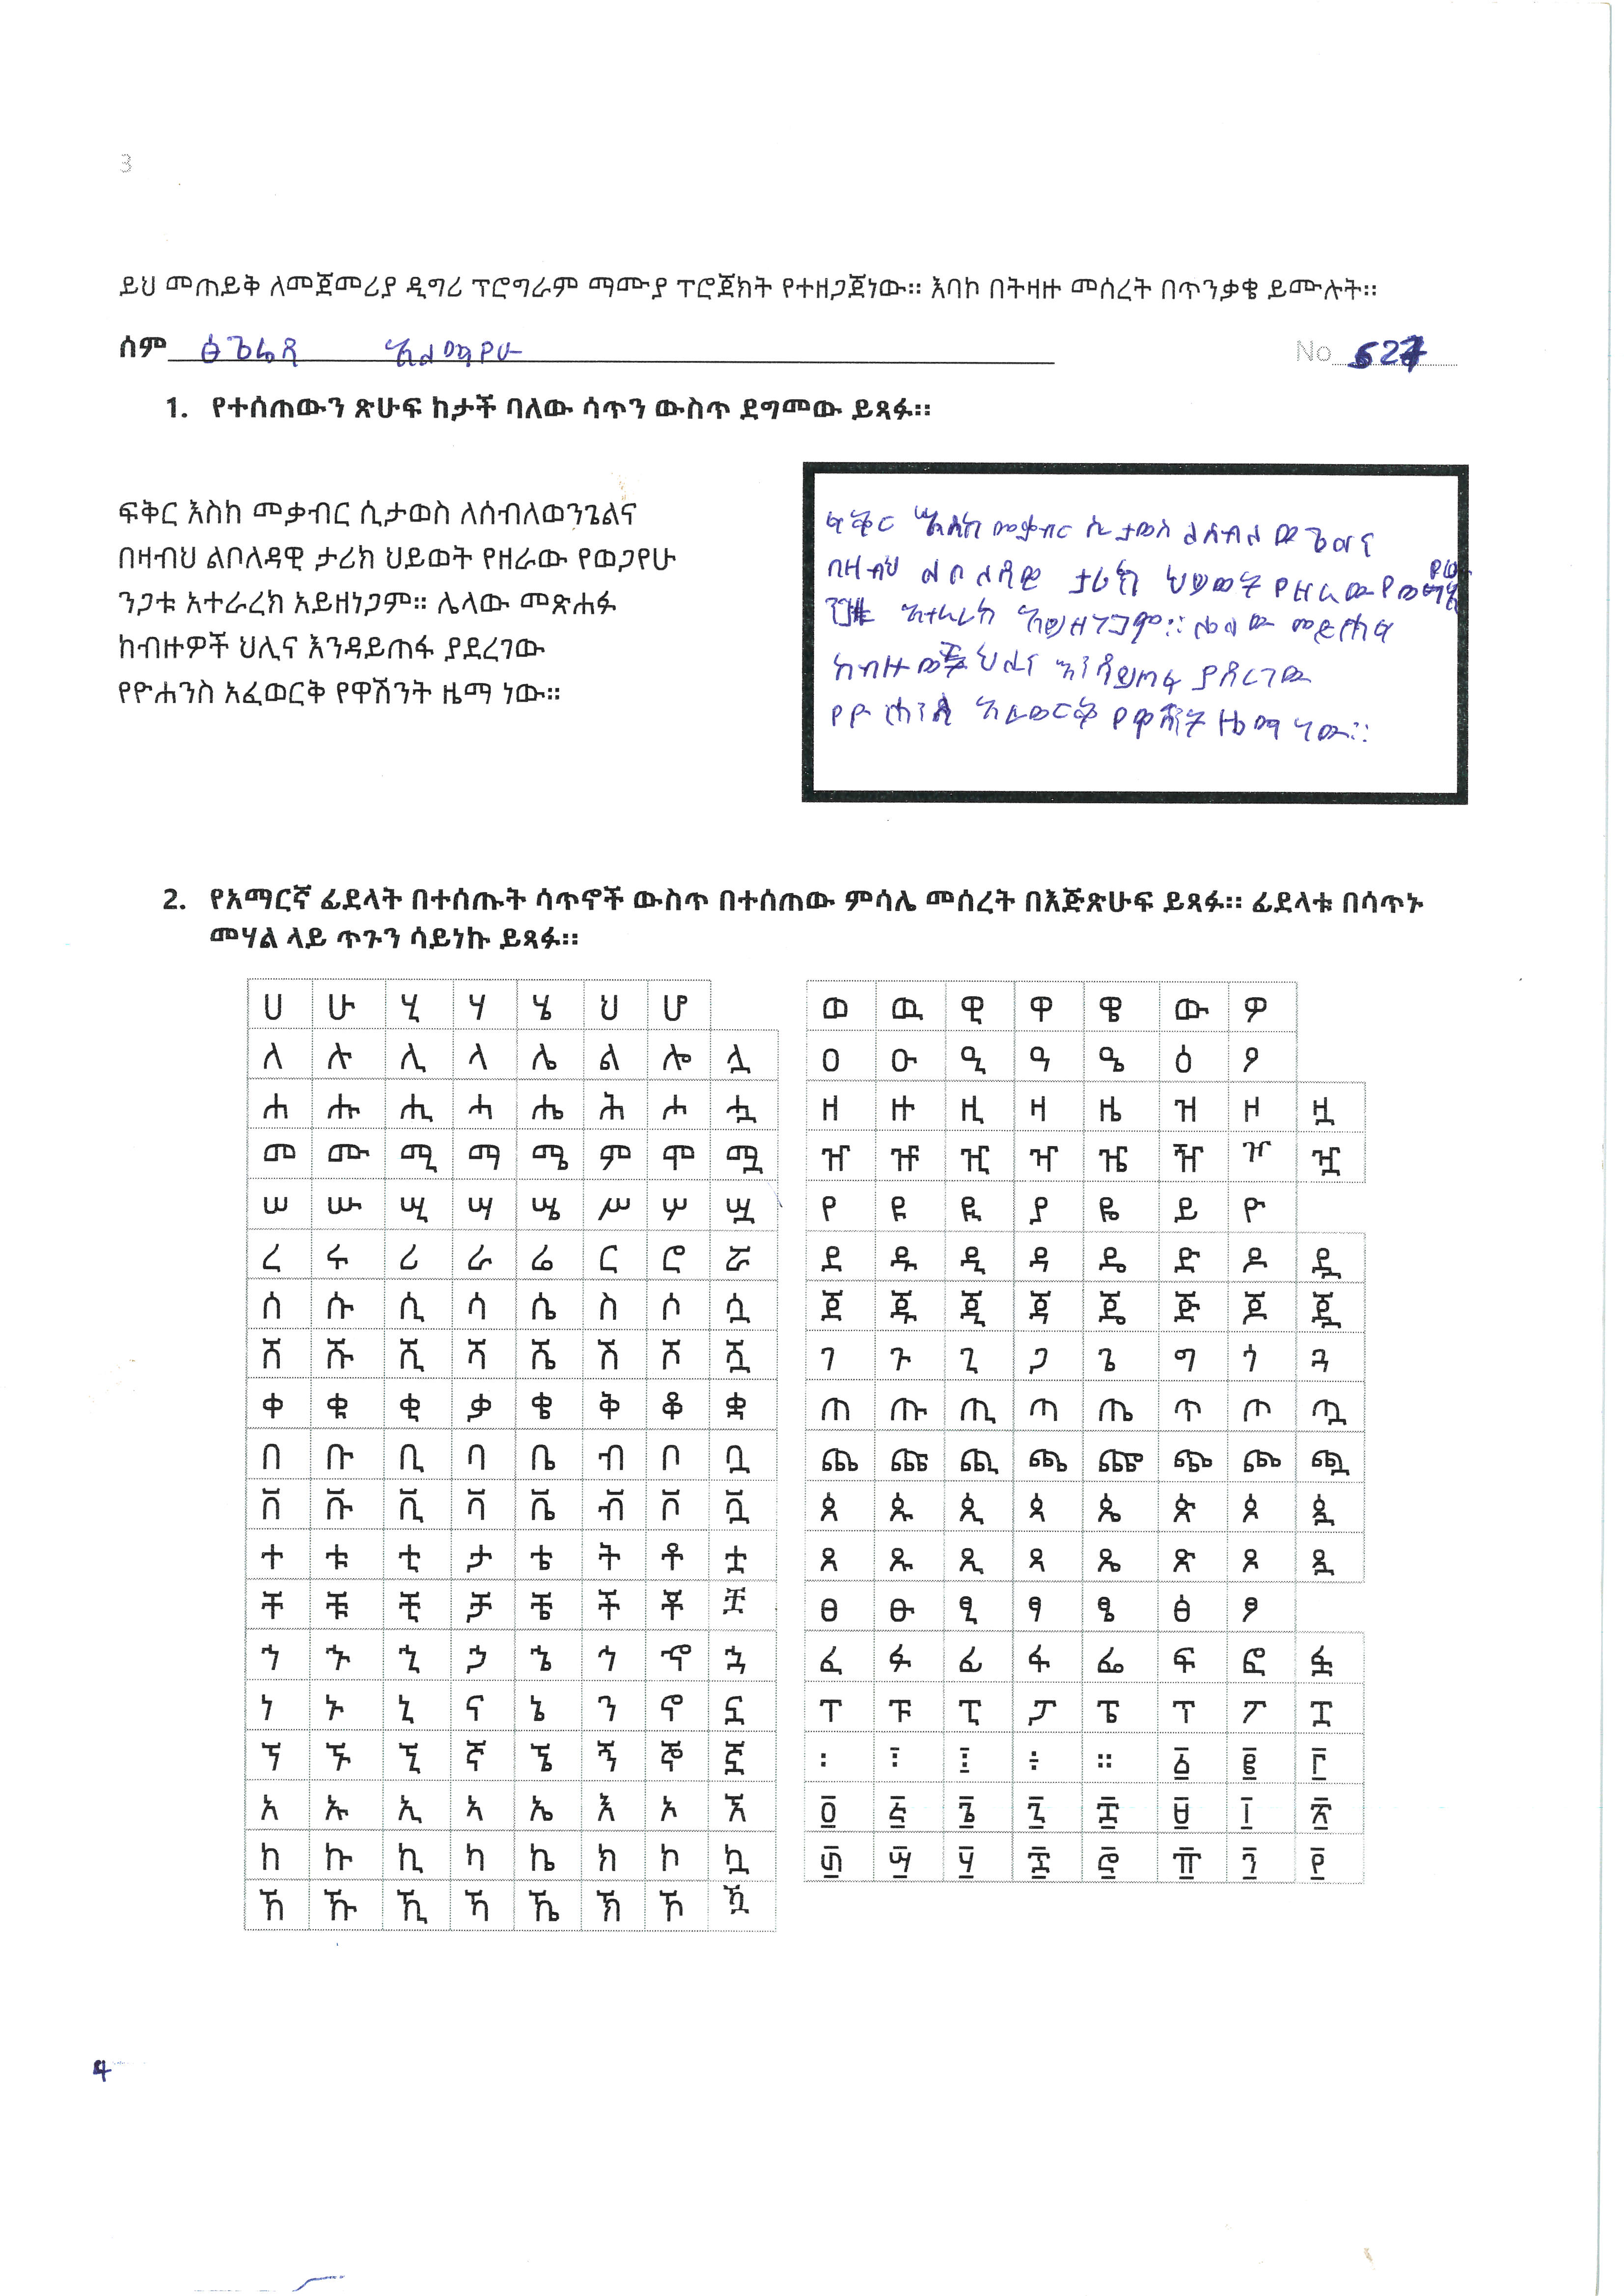 3
ይህ መጠይቅ ለመጀመሪያ ዲግሪ ፕሮግራም ማሙያ ፕሮጀክት የተዘጋጀነው። እባኮ በትዛዙ መሰረት በጥንቃቄ ይሙሉት።
ሰም ፅጌሬዳ አለማየሁ No 527
1. የተሰጠውን ጽሁፍ ከታች ባለው ሳጥን ውስጥ ደግመው ይጻፉ።
ፍቅር እስከ መቃብር ሲታወስ ለሰብለወንጌልና
በዛብህ ልቦለዳዊ ታሪክ ህይወት የዘራው የወጋየሁ
ንጋቱ አተራረክ አይዘነጋም። ሌላው መጽሐፉ
ከብዙዎች ህሊና እንዳይጠፋ ያደረገው
የዮሐንስ አፈወርቅ የዋሽንት ዜማ ነው።
ፍቅር እስከ መቃብር ሲታወስ ለሰብለ ወጌልና
በዛብህ ልቦለዳዊ ታሪክ ህይወት የዘራው
አተራረክ አይዘነጋም። ሌላው መጽሐፉ
ህሊና እንዳይጠፋ ያደረገው
የዮሐንስ አፈወርቅ የዋሽንት ዜማ ነው።
2. የአማርኛ ፊደላት በተሰጡት ሳጥኖች ውስጥ በተሰጠው ምሳሌ መሰረት በእጅጽሁፍ ይጻፉ። ፊደላቱ በሳጥኑ
መሃል ላይ ጥጉን ሳይነኩ ይጻፉ።
ሀ ሁ ሂ ሃ ሄ ህ ሆ
ለ ሉ ሊ ላ ሌ ል ሎ ሏ
ሐ ሑ ሒ ሓ ሔ ሕ ሖ ሗ
መ ሙ ሚ ማ ሜ ም ሞ ሟ
ሠ ሡ ሢ ሣ ሤ ሥ ሦ ሧ
ረ ሩ ሪ ራ ሬ ር ሮ ሯ
ሰ ሱ ሲ ሳ ሴ ስ ሶ ሷ
ሸ ሹ ሺ ሻ ሼ ሽ ሾ ሿ
ቀ ቁ ቂ ቃ ቄ ቅ ቆ ቋ
በ ቡ ቢ ባ ቤ ብ ቦ ቧ
ቨ ቩ ቪ ቫ ቬ ቭ ቮ ቯ
ተ ቱ ቲ ታ ቴ ት ቶ ቷ
ቸ ቹ ቺ ቻ ቼ ች ቾ ቿ
ኀ ኁ ኂ ኃ ኄ ኅ ኆ ኋ
ነ ኑ ኒ ና ኔ ን ኖ ኗ
ኘ ኙ ኚ ኛ ኜ ኝ ኞ ኟ
አ ኡ ኢ ኣ ኤ እ ኦ ኧ
ከ ኩ ኪ ካ ኬ ክ ኮ ኳ
ኸ ኹ ኺ ኻ ኼ ኽ ኾ ዃ
ወ ዉ ዊ ዋ ዌ ው ዎ
ዐ ዑ ዒ ዓ ዔ ዕ ዖ
ዘ ዙ ዚ ዛ ዜ ዝ ዞ ዟ
ዠ ዡ ዢ ዣ ዤ ዥ ዦ ዧ
የ ዩ ዪ ያ ዬ ይ ዮ
ደ ዱ ዲ ዳ ዴ ድ ዶ ዷ
ጀ ጁ ጂ ጃ ጄ ጅ ጆ ጇ
ገ ጉ ጊ ጋ ጌ ግ ጎ ጓ
ጠ ጡ ጢ ጣ ጤ ጥ ጦ ጧ
ጨ ጩ ጪ ጫ ጬ ጭ ጮ ጯ
ጰ ጱ ጲ ጳ ጴ ጵ ጶ ጷ
ጸ ጹ ጺ ጻ ጼ ጽ ጾ ጿ
ፀ ፁ ፂ ፃ ፄ ፅ ፆ
ፈ ፉ ፊ ፋ ፌ ፍ ፎ ፏ
ፐ ፑ ፒ ፓ ፔ ፕ ፖ ፗ
፡ ፣ ፤ ÷ ። ፩ ፪ ፫
፬ ፭ ፮ ፯ ፰ ፱ ፲ ፳
፴ ፵ ፶ ፷ ፸ ፹ ፺ ፻
4